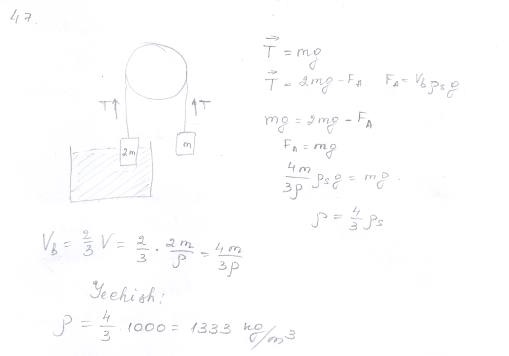 47.
T⃗ = mg
T⃗ = 2mg - F_A  F_A = V_b ρ_s g
mg = 2mg - F_A
F_A = mg
4m/3ρ ρ_s g = mg.
ρ = 4/3 ρ_s
T T
2m m
V_b = 2/3 V = 2/3 · 2m/ρ = 4m/3ρ
Yechish:
ρ = 4/3 · 1000 = 1333 kg/m³